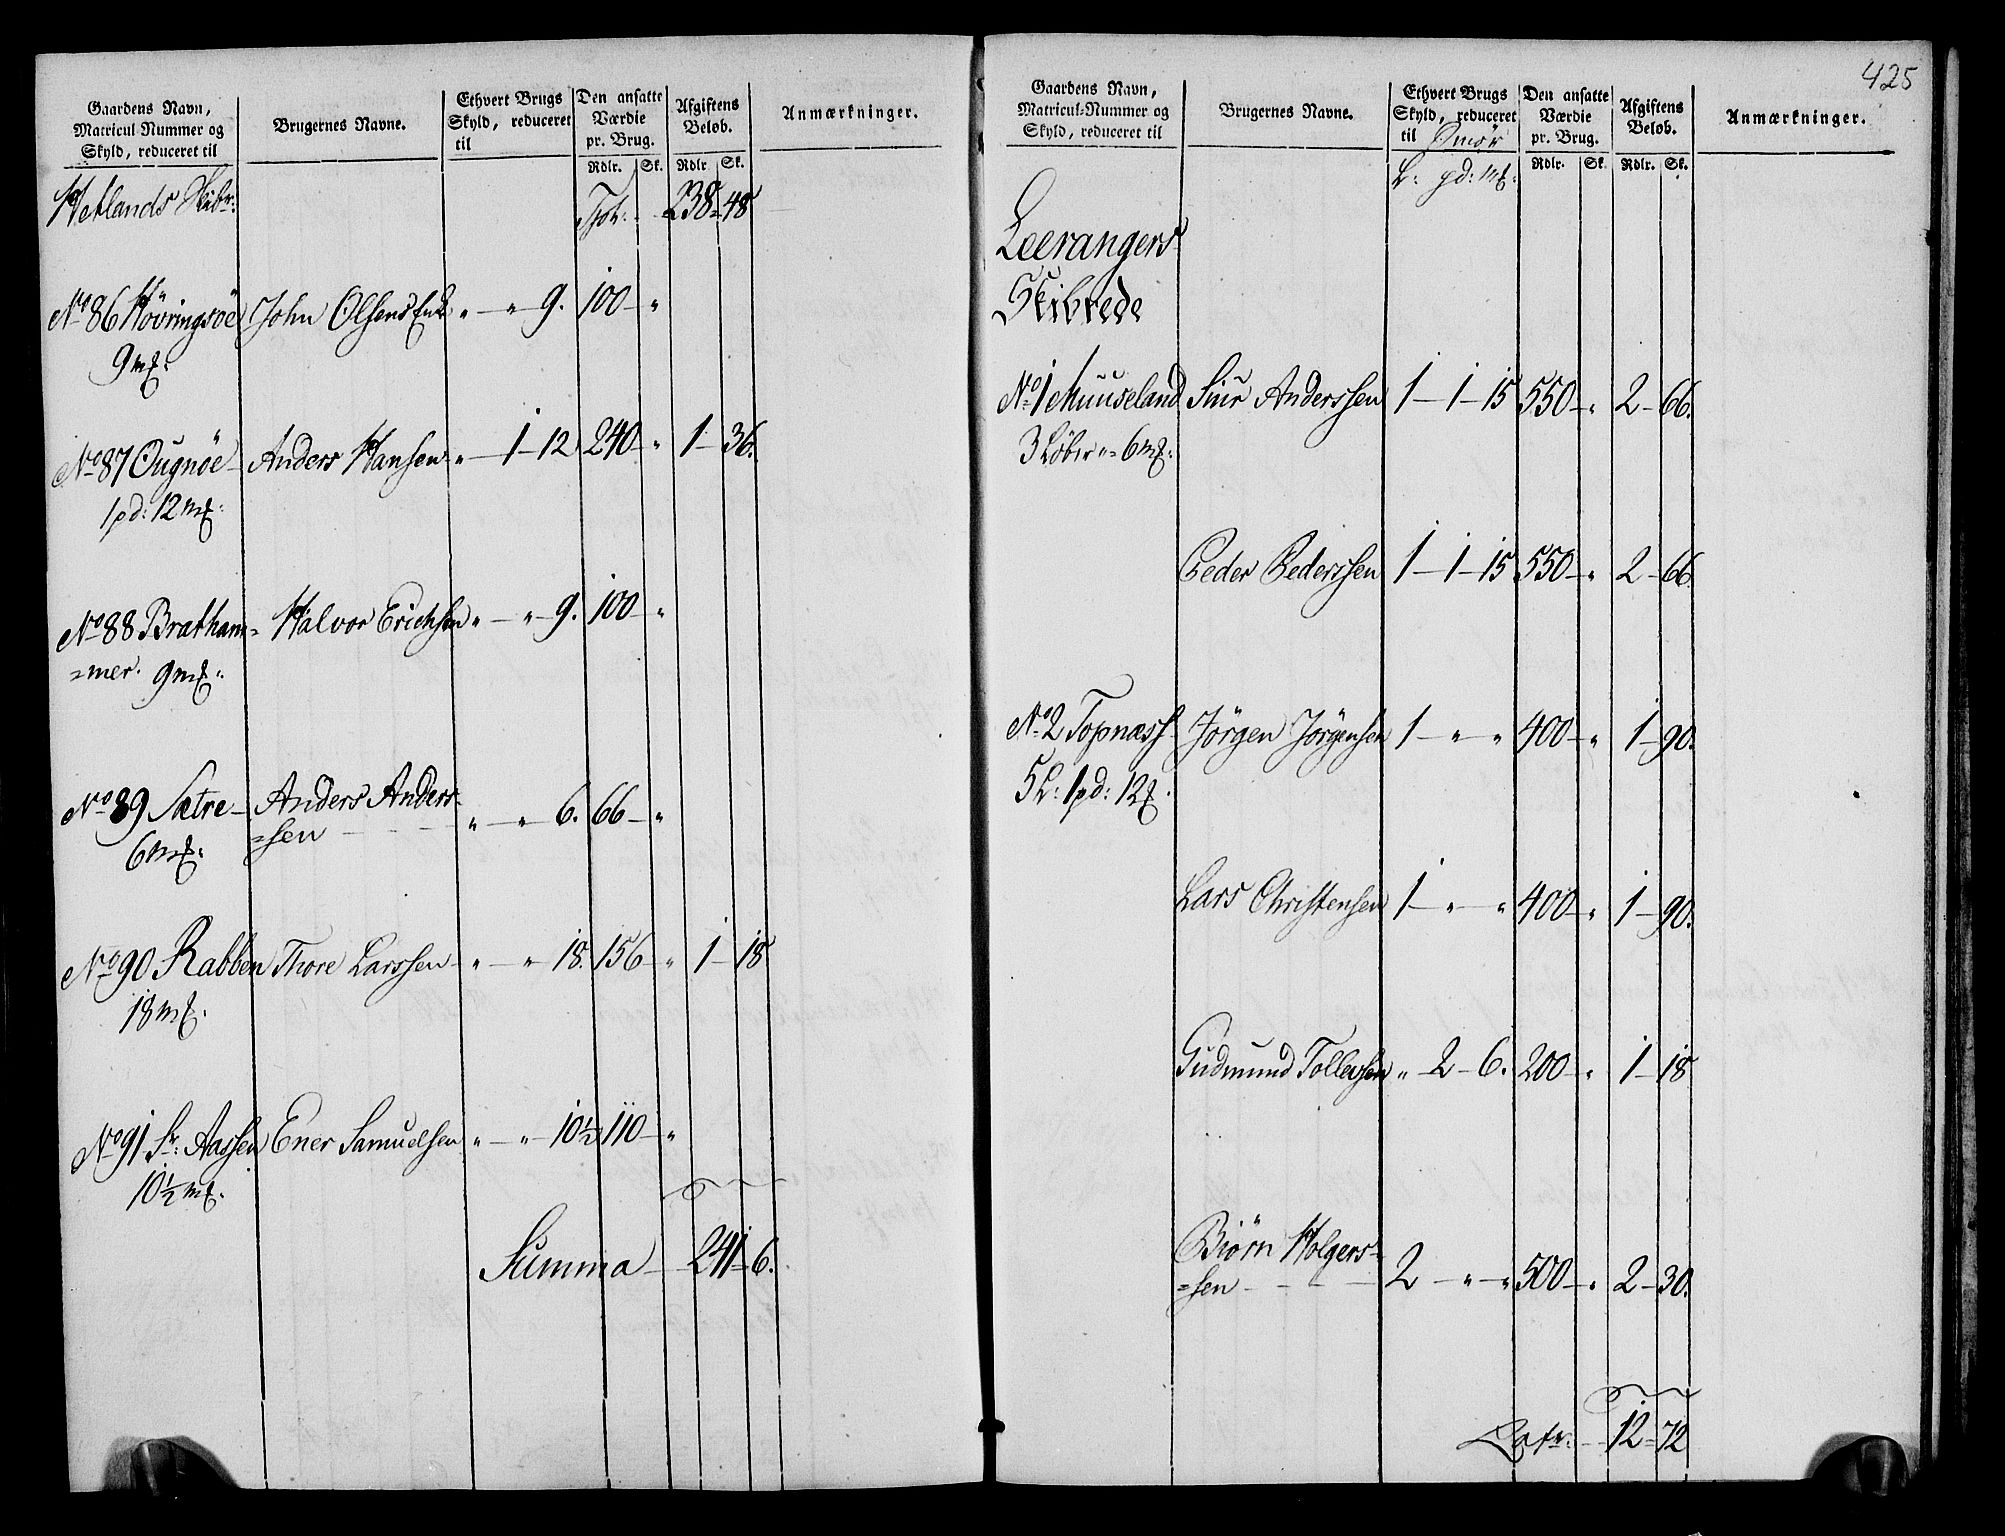 Gaardens Navn,
Matricul Nummer og
Skyld, reduceret til
Brugernes Navne.
Ethvert Brugs
Skyld, reduceret
til
Den ansatte
Værdie
pr. Brug.
Rdlr. Sk.
Afgiftens
Beløb.
Rdlr Sk.
Anmærkninger.
Hetlands Skibr: 238 = 48
No 86 Hövringsöe John Olsens Enk „ — „ 9. 100 — „
9 m[:
No 87 Ougnöe — Anders Hansen — „ — 1 — 12 240 — „ 1 — 36.
1 pd: 12 m[:
No 88 Bratham= Halvor Erichsen „ — „ — 9. 100 — „
=mer. 9 m[:
No 89 Sætre — Anders Anders=
=sen — „ — „ — 6. 66 — „
6 m[:
No 90 Rabben Thore Larssen — „ — „ 18. 156 — „ 1 — 18
18 m[:
No 91 Sr: Aassen Ener Samuelsen „ — „ — 10½ 110 — „
10½ m[:
Summa — 241 = 6.
425
Gaardens Navn,
Matricul-Nummer og
Skyld, reduceret til
Brugernes Navne.
Ethvert Brugs
Skyld, reduceret
til Smör
L: pd: m[:
Den ansatte
Værdie
pr. Brug.
Rdlr. Sk.
Afgiftens
Beløb.
Rdlr. Sk.
Anmærkninger.
Leerangers
Skibrede
No 1 Muuseland Siur Anderssen 1 — 1 — 15 550 — „ 2 — 66.
3 Löber „ = 6 m[:
Peder Pederssen 1 — 1 — 15 550 — „ 2 — 66
No 2 Topnæss Jörgen Jörgensen 1 — „ — „ 400 — „ 1 — 90.
5 L: 1 pd: 12 [.
Lars Christensen 1 — „ — „ 400 — „ 1 — 90.
Gudmund Tollevsen „ — 2 — 6. 200 — „ 1 — 18
Biörn Holgers=
=sen — 2 — „ — „ 500 — „ 2 — 30.
Latr: — 12 = 72